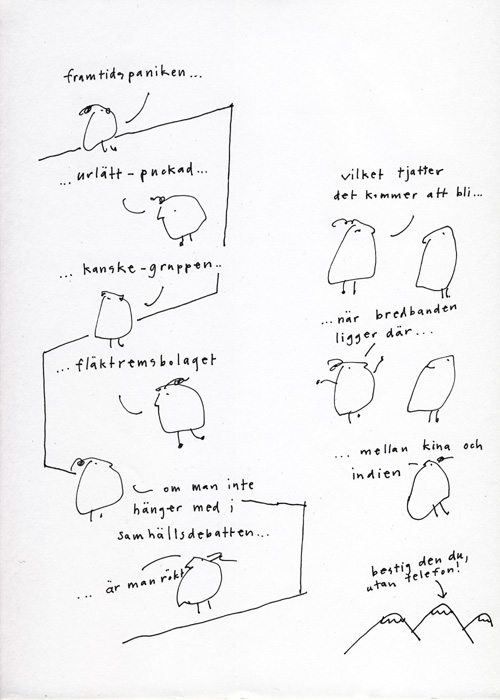 framtidspaniken...
...urlätt-puckad...
...kanske-gruppen..
...fläktremsbolaget
om man inte
hänger med i
samhällsdebatten...
... är man rökt
vilket tjatter
det kommer att bli...
...när bredbanden
ligger där...
... mellan kina och
indien
bestig den du,
utan telefon!